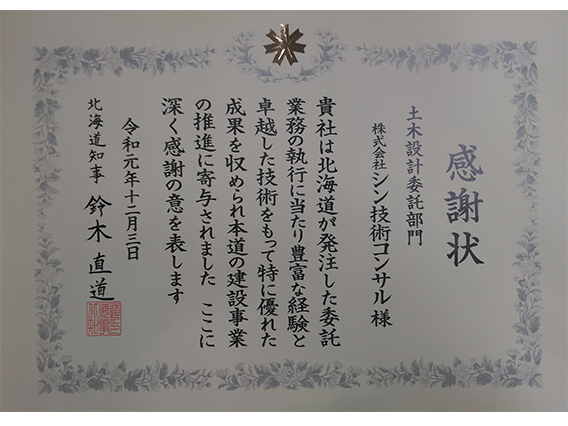 感謝状
土木設計委託部門
株式会社シン技術コンサル 様
貴社は北海道が発注した委託
業務の執行に当たり豊富な経験と
卓越した技術をもって特に優れた
成果を収められ本道の建設事業
の推進に寄与されました ここに
深く感謝の意を表します
令和元年十二月三日
北海道知事 鈴木直道